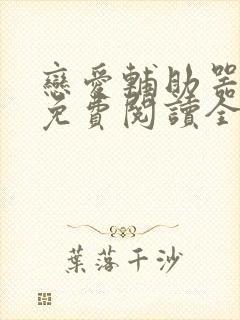 戀愛輔助器
免費閱讀全
葉落千沙